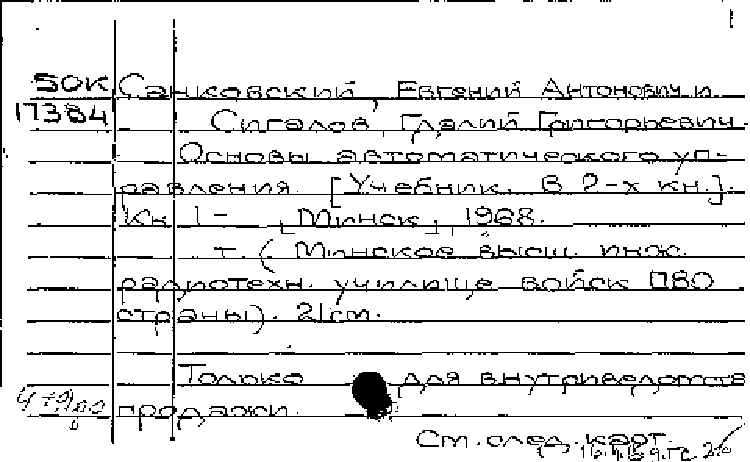 50К Санковский, Евгений Антонович и
17384 Сигалов, Гдалий Григорьевич.
Основы автоматического уп-
равления. [Учебник. В 2-х кн.].
Кн. 1- [Минск], 1968.
т. (Минское высш. инж.
радиотехн. училище войск ПВО
страны). 21см.
Только для внутриведомств
продажи.
См. след. карт.